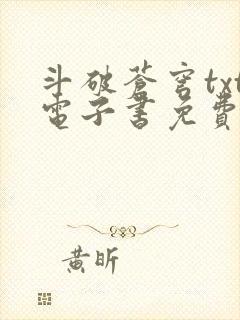 斗破蒼穹txt
電子書免費
黃昕